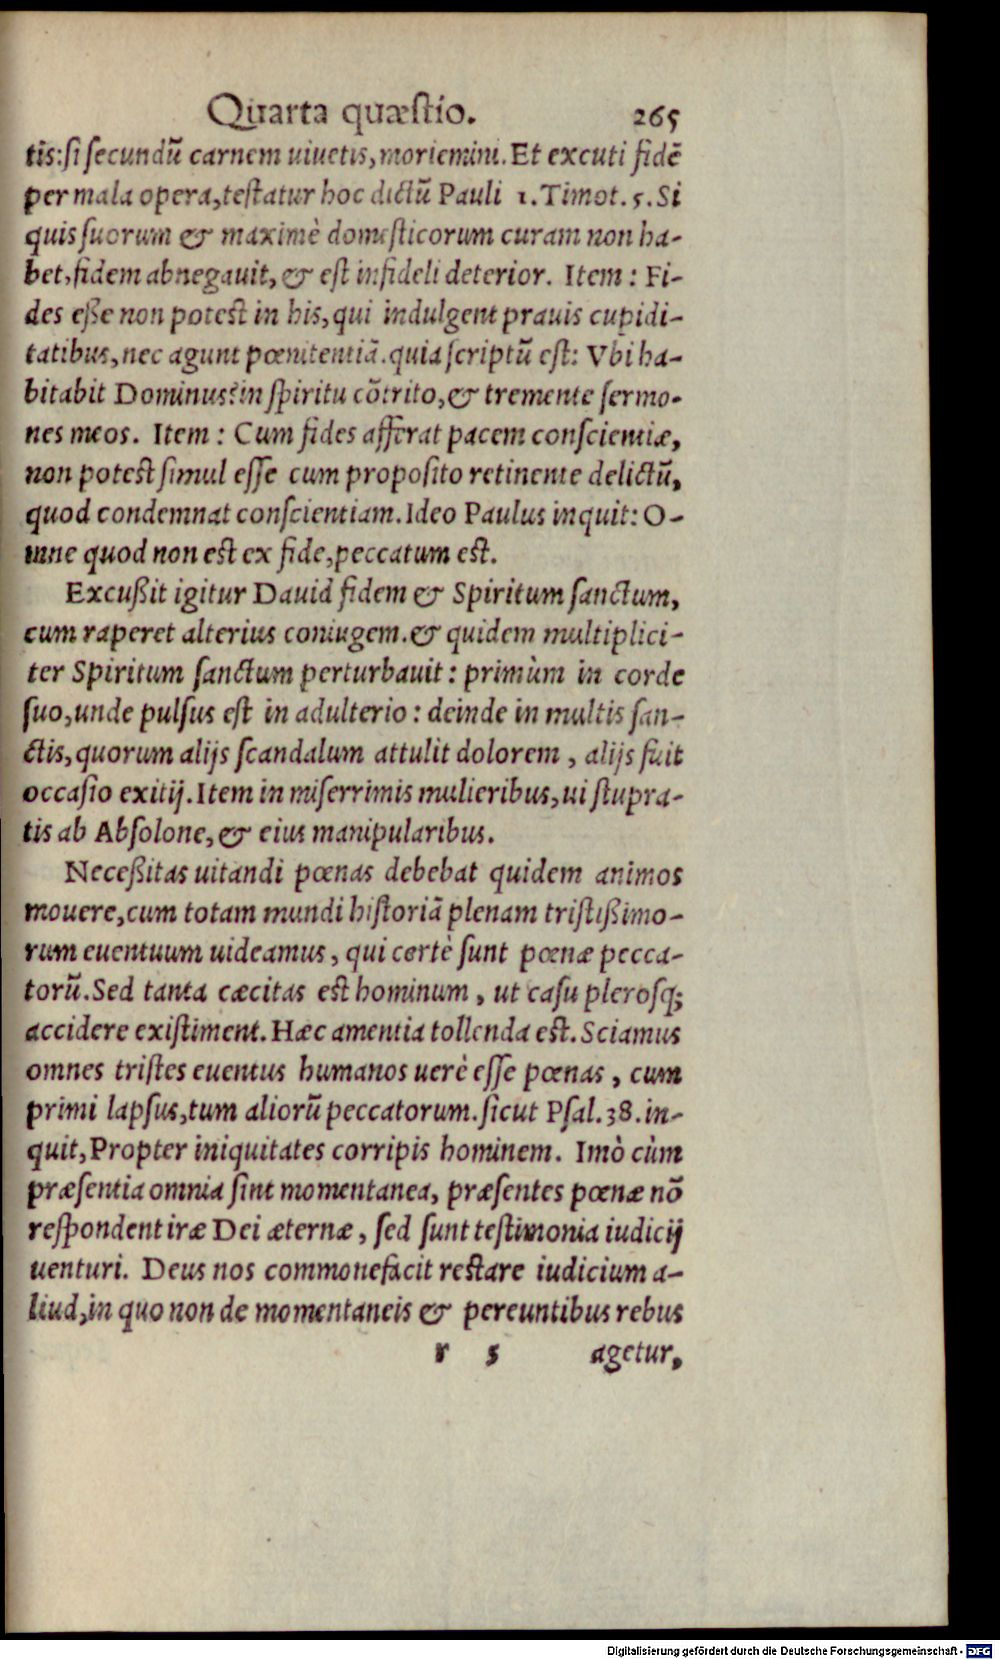 Quarta quæstio. 265
tis:si secundũ carnem uiuetis, moriemini. Et excuti fidẽ
per mala opera, testatur hoc dictũ Pauli 1. Timot. 5. Si
quis suorum & maximè domesticorum curam non ha-
bet, fidem abnegauit, & est infideli deterior. Item : Fi-
des eße non potest in his, qui indulgent prauis cupidi-
tatibus, nec agunt pœnitentiã. quia scriptũ est: Vbi ha-
bitabit Dominus? in spiritu cõtrito, & tremente sermo-
nes meos. Item : Cum fides afferat pacem conscientiæ,
non potest simul esse cum proposito retinente delictũ,
quod condemnat conscientiam. Ideo Paulus inquit: O-
mne quod non est ex fide, peccatum est.
Excußit igitur Dauid fidem & Spiritum sanctum,
cum raperet alterius coniugem. & quidem multiplici-
ter Spiritum sanctum perturbauit : primùm in corde
suo, unde pulsus est in adulterio : deinde in multis san-
ctis, quorum alijs scandalum attulit dolorem, alijs fuit
occasio exitij. Item in miserrimis mulieribus, ui stupra-
tis ab Absolone, & eius manipularibus.
Neceßitas uitandi pœnas debebat quidem animos
mouere, cum totam mundi historiã plenam tristißimo-
rum euentuum uideamus, qui certè sunt pœnæ pecca-
torũ. Sed tanta cæcitas est hominum, ut casu plerosq;
accidere existiment. Hæc amentia tollenda est. Sciamus
omnes tristes euentus humanos uerè esse pœnas, cum
primi lapsus, tum aliorũ peccatorum. sicut Psal. 38. in-
quit, Propter iniquitates corripis hominem. Imò cùm
præsentia omnia sint momentanea, præsentes pœnæ nõ
respondent iræ Dei æternæ, sed sunt testimonia iudicij
uenturi. Deus nos commonefacit restare iudicium a-
liud, in quo non de momentaneis & pereuntibus rebus
r 5 agetur,
Digitalisierung gefördert durch die Deutsche Forschungsgemeinschaft - DFG